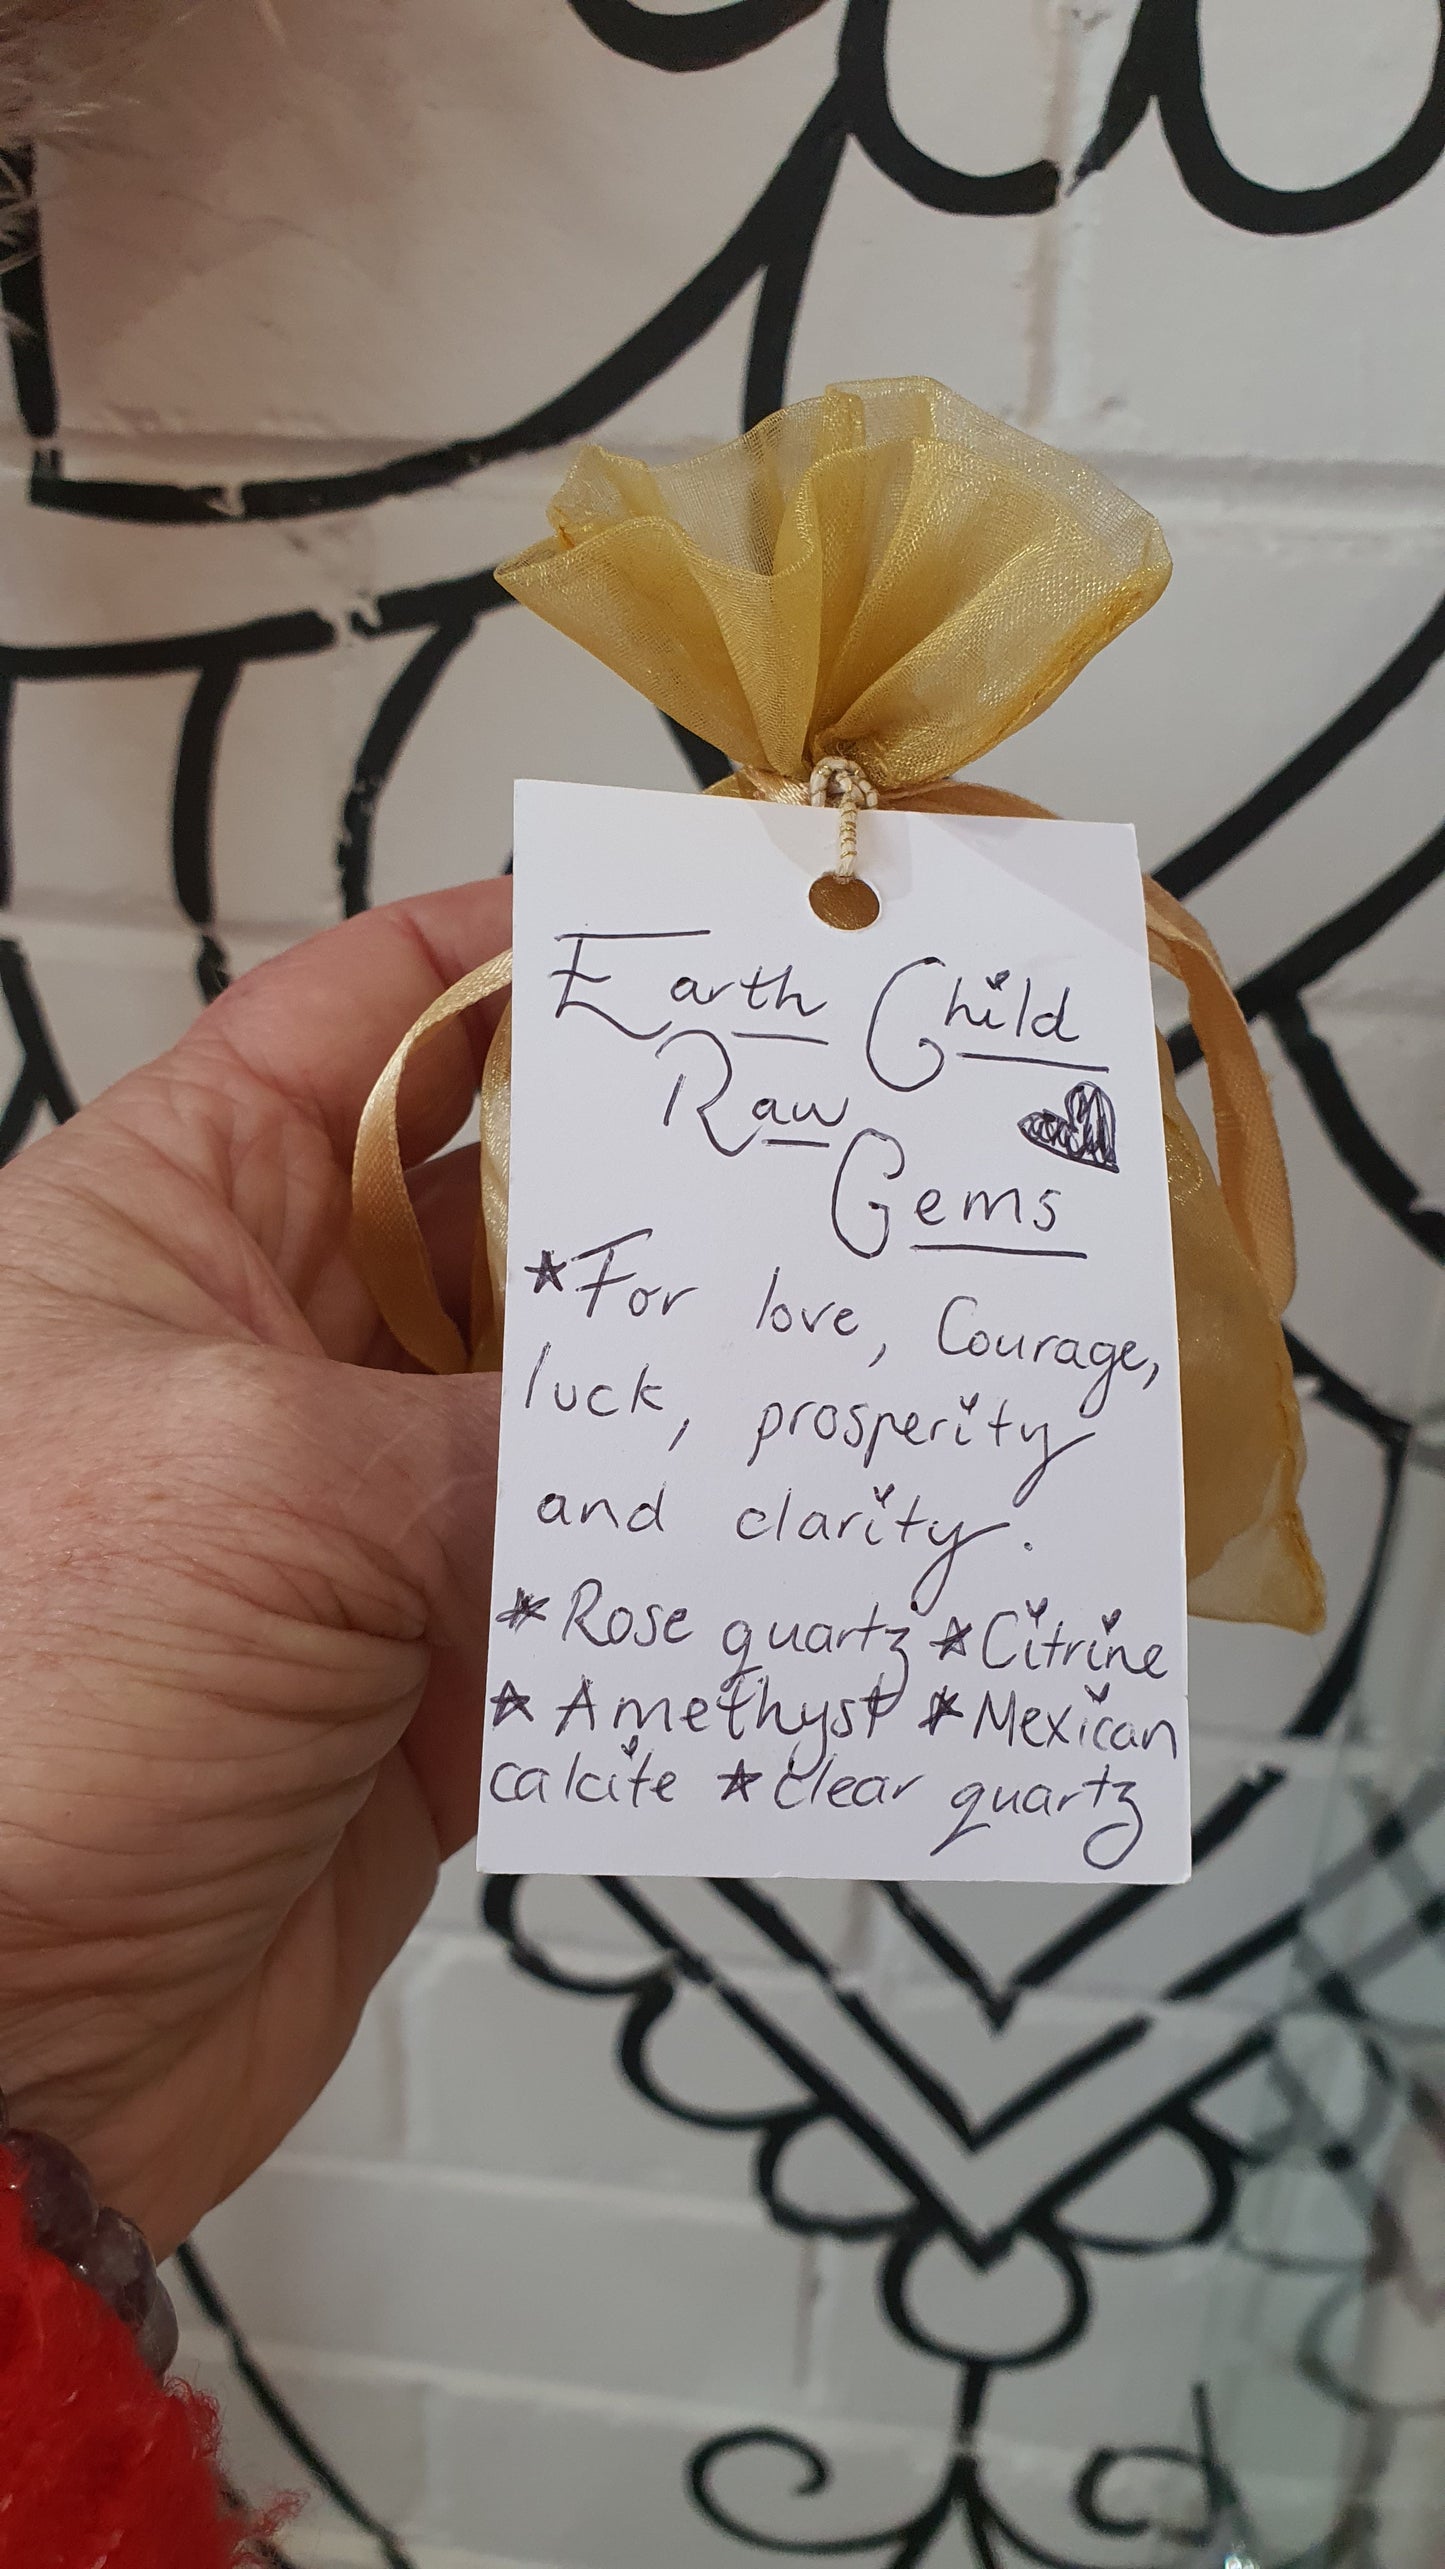 Earth Child
Raw
Gems
★For love, Courage,
luck, prosperity
and clarity.
★Rose quartz ★Citrine
★Amethyst ★Mexican
calcite ★clear quartz